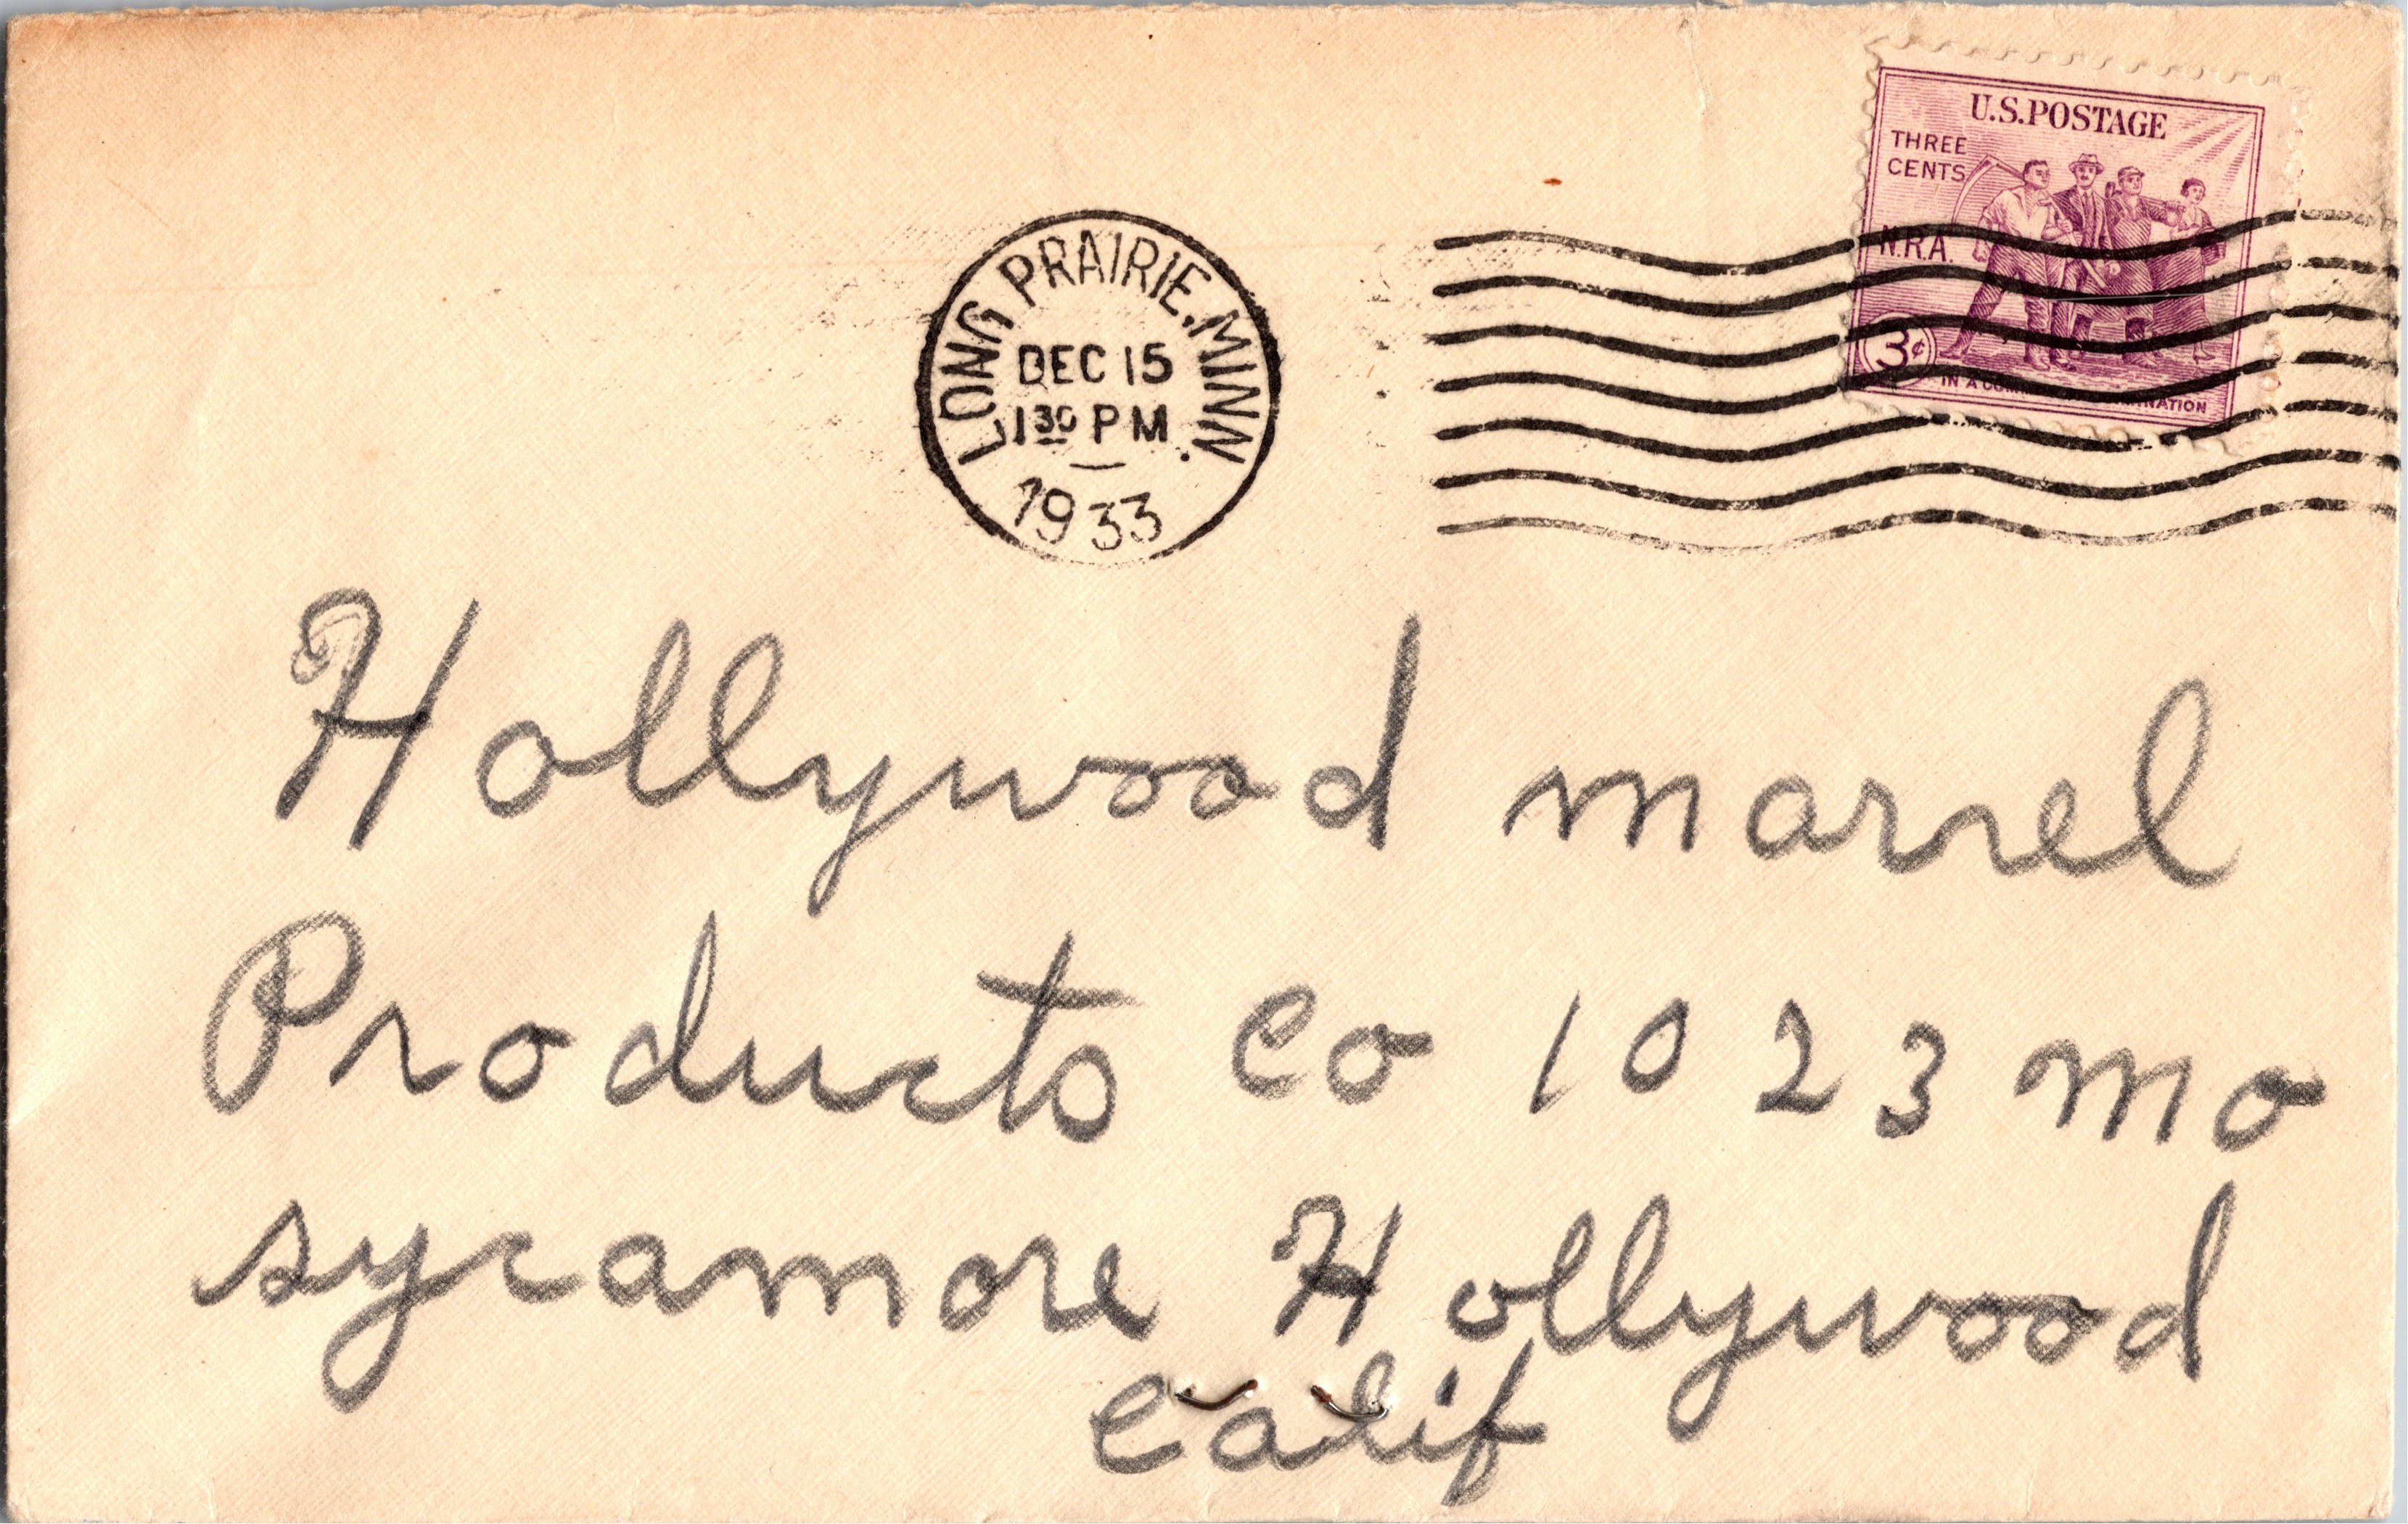 U.S.POSTAGE
THREE
CENTS
N.R.A.
3¢
IN A
LONG PRAIRIE, MINN.
DEC 15
1 30 PM
1933
Hollywood marvel
Products Co 1023 mo
sycamore Hollywood
Calif